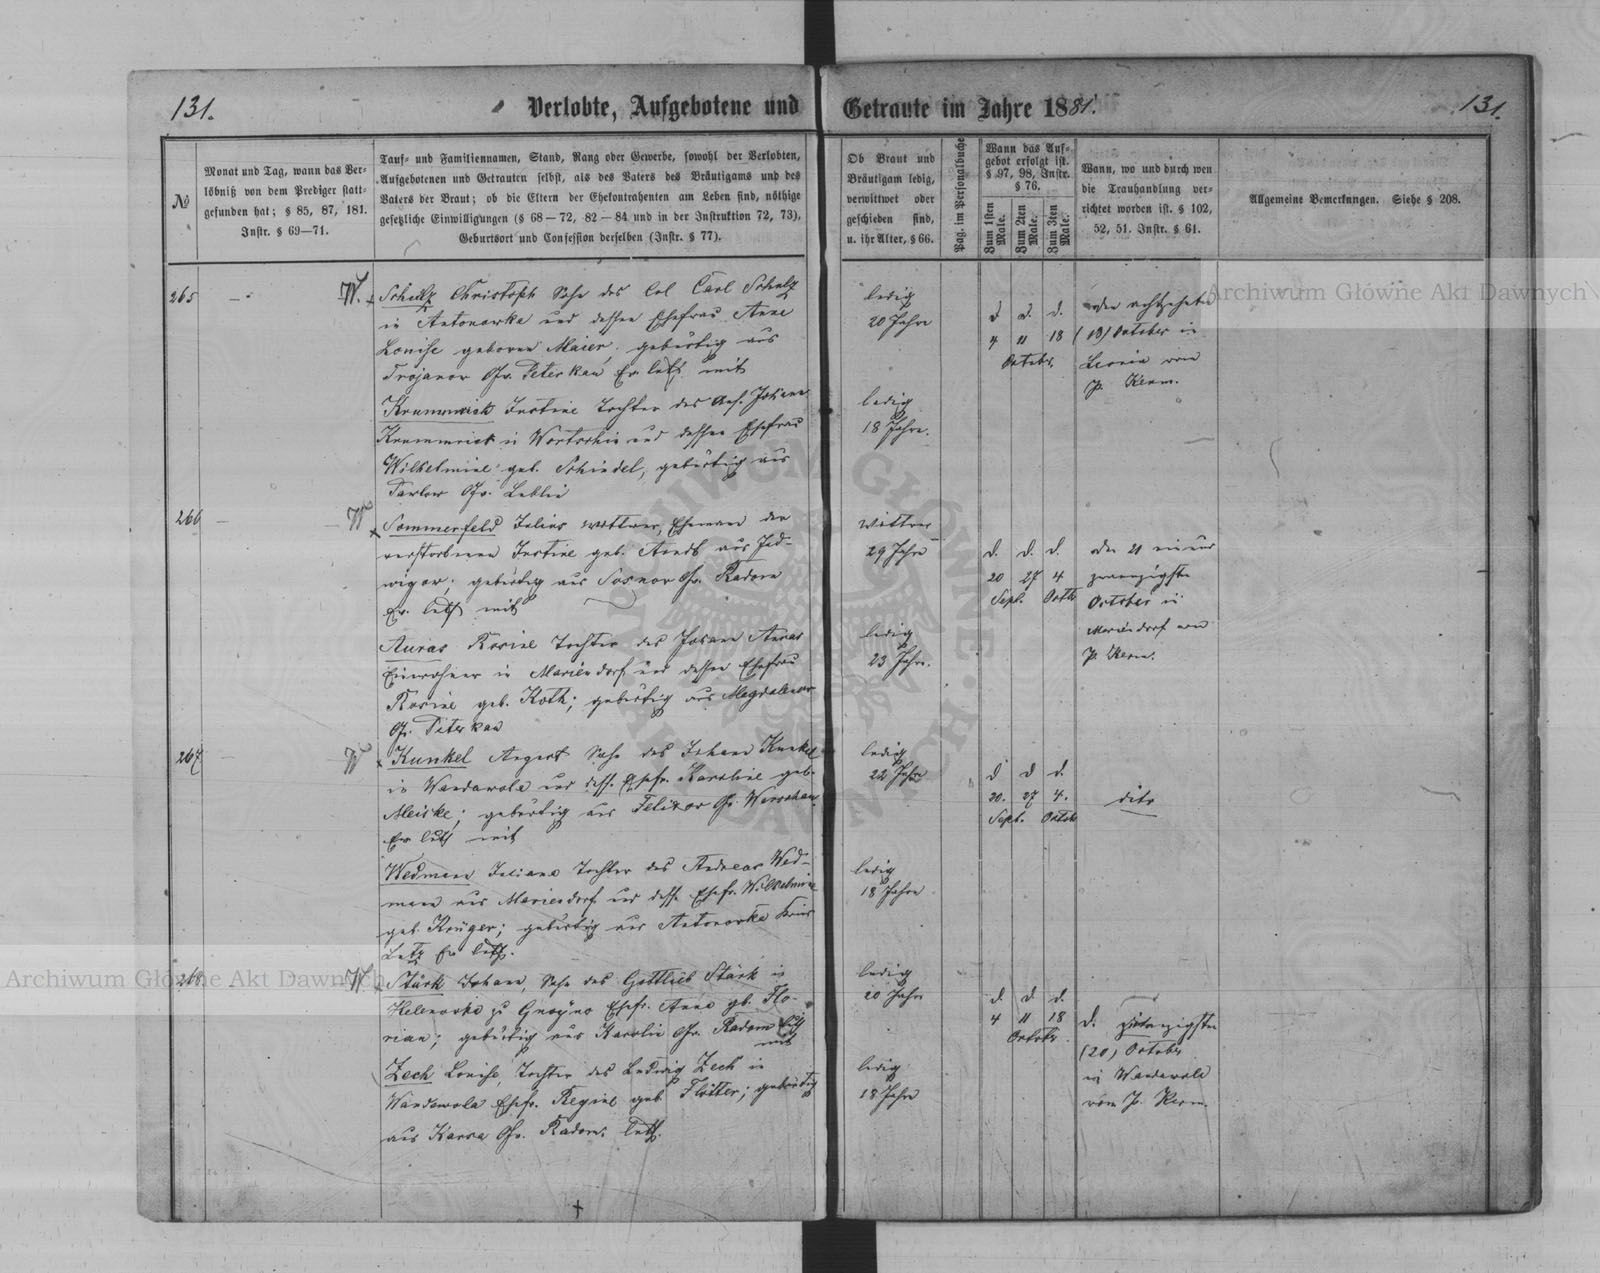 131.
Verlobte, Aufgebotene und Getraute im Jahre 1881.
131.
No
Monat und Tag, wann das Ver-
löbniß von dem Prediger statt-
gefunden hat; § 85, 87, 181.
Instr. § 69—71.
Tauf- und Familiennamen, Stand, Rang oder Gewerbe, sowohl der Verlobten,
Aufgebotenen und Getrauten selbst, als des Vaters des Bräutigams und des
Vaters der Braut; ob die Eltern der Ehekontrahenten am Leben sind, nöthige
gesetzliche Einwilligungen (§ 68—72, 82—84 und in der Instruktion 72, 73),
Geburtsort und Confession derselben (Instr. § 77).
Ob Braut und
Bräutigam ledig,
verwittwet oder
geschieden sind,
u. ihr Alter, § 66.
Pag. im Personalbuche
Wann das Auf-
gebot erfolgt ist.
§ 97, 98, Instr.
§ 76.
Zum 1sten
Male.
Zum 2ten
Male.
Zum 3ten
Male.
Wann, wo und durch wen
die Trauhandlung ver-
richtet worden ist. § 102,
52, 51. Instr. § 61.
Allgemeine Bemerkungen. Siehe § 208.
265
W.
Schulz Christoph Sohn des Col Carl Schulz
in Antonowka und dessen Ehefrau Anne
Louise geboren Maier, gebürtig aus
Trojanow Gv. Peterkau, Ev. luth. mit
Krummrick Justine Tochter des Johann
Krummrick in und dessen Ehefrau
Wilhelmine geb. Schindel, gebürtig aus
Tarlow Gv. Lublin
ledig
20 Jahre
ledig
18 Jahre.
d. d. d.
4 11 18
October
den achtzehnten
(18) October in
von
P. Kerm.
266
W
Sommerfeld Julius Wittwer, Ehemann der
verstorbenen Justine geb. Arndt aus Jad-
wigow; gebürtig aus Sosnow Gv. Radom
Ev. luth mit
Auras Rosine Tochter des Johann Auras
Einwohner in Mariendorf und dessen Ehefrau
Rosine geb. Koth; gebürtig aus Magdalenow
Gv. Peterkau
Wittwer
29 Jahre
ledig
23 Jahre.
d. d. d.
20 27 4
Sept. Octb
den 21 ein und
zwanzigsten
October in
Mariendorf von
P. Kerm.
267
W
Kunkel August Sohn des Johann Kunkel
in Wandawola und dess. Ehefr. Karoline geb.
Meiske; gebürtig aus Felixow Gv. Warschau
Ev luth mit
Wedmann Juliane Tochter des Andreas Wed-
mann aus Mariendorf und dess. Ehefr. Wilhelmine
geb. Krüger; gebürtig aus Antonowka Kreis
Ev luth.
ledig
22 Jahre
ledig
18 Jahre
d d d.
20. 27 4.
Sept. Octob
dito
268.
W
Stärk Johann, Sohn des Gottlieb Stärk in
Helenowka zu Gnojno Ehefr. Anne gb. Flo-
rian; gebürtig aus Karolin Gv. Radom luth
mit
Zech Louise, Tochter des Ludwig Zech in
Wandawola Ehefr. Regine geb. Flötter; gebürtig
aus Gv. Radom. luth.
ledig
20 Jahre
ledig
18 Jahre
d. d d.
4 11 18
October
d. zwanzigsten
(20) October
in Wandawola
vom P. Kerm.
Archiwum Główne Akt Dawnych
Archiwum Główne Akt Dawnych